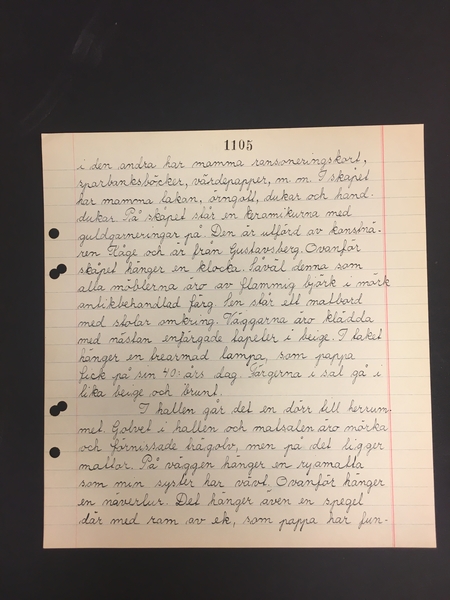 1105
i den andra har mamma ransoneringskort,
sparbanksböcker, värdepapper, m. m. I skåpet
har mamma lakan, örngott, dukar och hand-
dukar. På skåpet står en keramikurna med
guldgarneringar på. Den är utförd av konstnä-
ren Kåge och är från Gustavsberg. Ovanför
skåpet hänger en klocka. Såväl denna som
alla möblerna äro av flammig björk i mörk
antikbehandlad färg. Sen står ett matbord
med stolar omkring. Väggarna äro klädda
med nästan enfärgade tapeter i beige. I taket
hänger en trearmad lampa, som pappa
fick på sin 40:-års dag. Färgerna i sal gå i
lika beige och brunt.
I hallen går det en dörr till herrum-
met. Golvet i hallen och matsalen äro mörka
och förnissade trägolv, men på det ligger
mattor. På väggen hänger en ryamatta
som min syster har vävt. Ovanför hänger
en näverlur. Det hänger även en spegel
där med ram av ek, som pappa har fun-